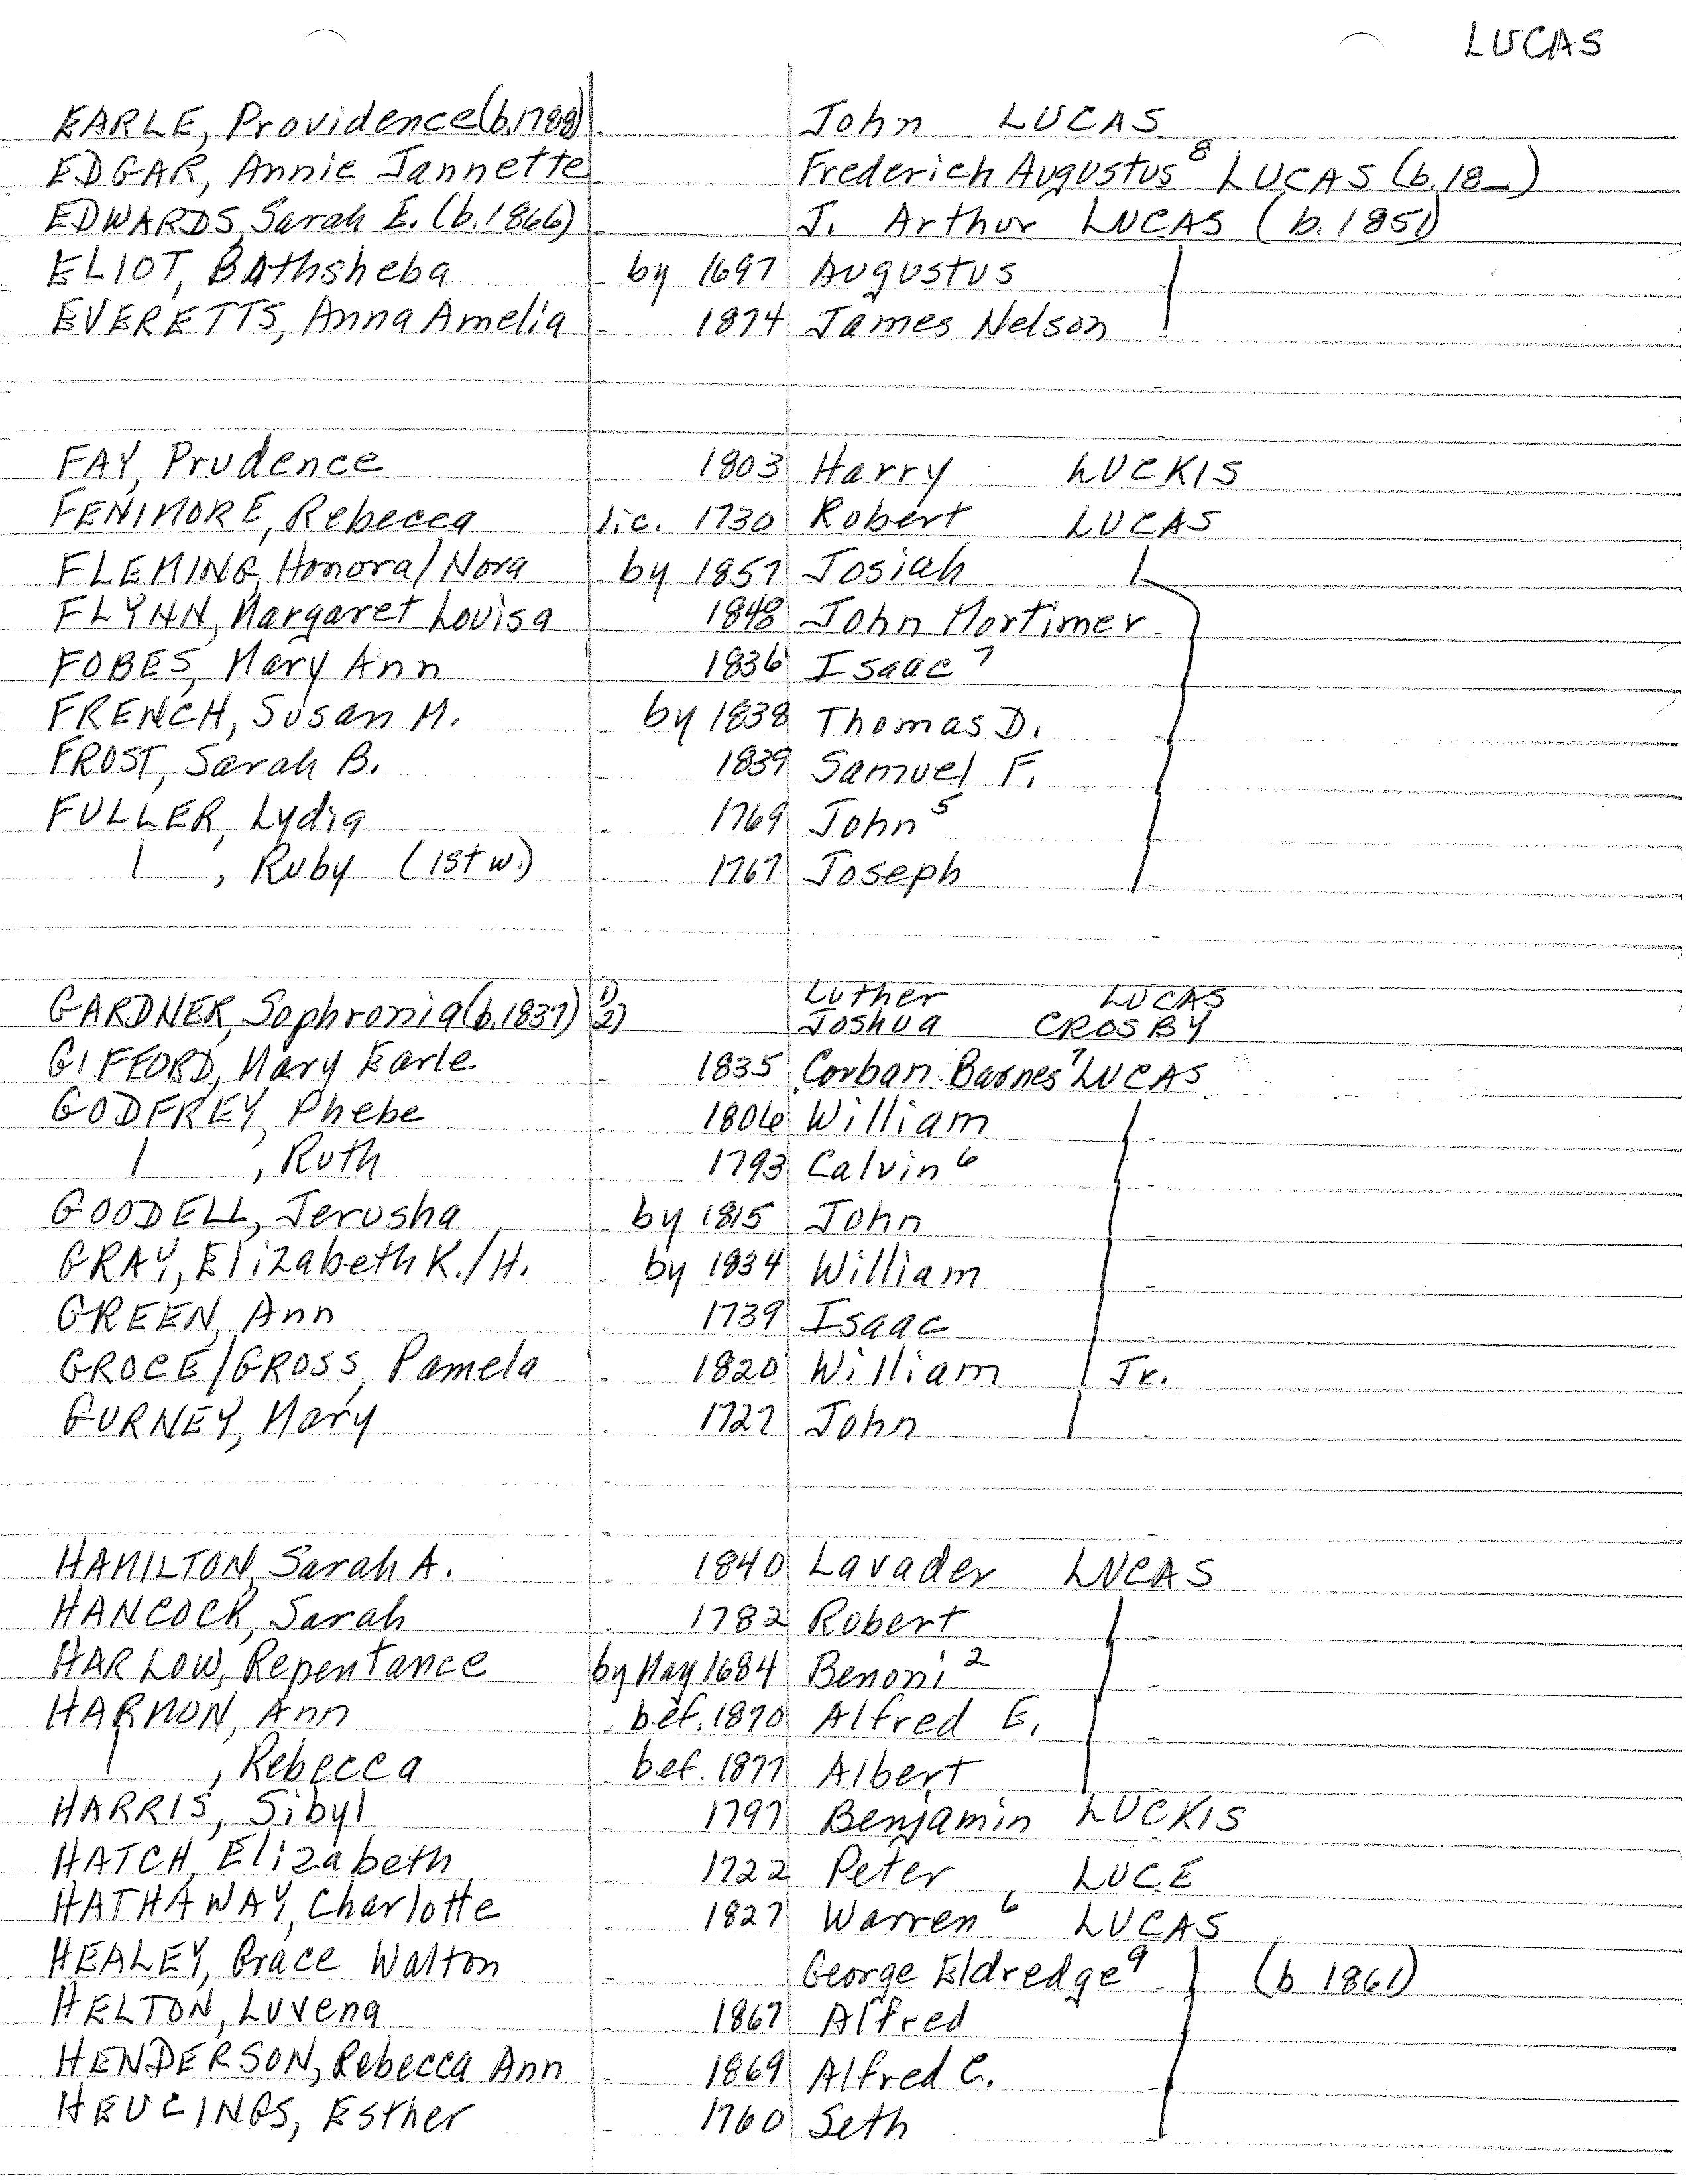 LUCAS
EARLE, Providence (b.1788) John LUCAS
EDGAR, Annie Jannette Frederich Augustus⁸ LUCAS (b.18_)
EDWARDS, Sarah E. (b.1866) J. Arthur LUCAS (b.1851)
ELIOT, Bathsheba by 1697 Augustus |
EVERETTS, Anna Amelia 1874 James Nelson |
FAY, Prudence 1803 Harry LUCKIS
FENIMORE, Rebecca lic. 1730 Robert LUCAS
FLEMING, Honora/Nora by 1857 Josiah |
FLYNN, Margaret Louisa 1848 John Mortimer |
FOBES, Mary Ann 1836 Isaac⁷ |
FRENCH, Susan M. by 1838 Thomas D. |
FROST, Sarah B. 1839 Samuel F. |
FULLER, Lydia 1769 John⁵ |
| , Ruby (1st w.) 1767 Joseph |
GARDNER, Sophronia (b.1837) 1) Luther LUCAS
2) Joshua CROSBY
GIFFORD, Mary Earle 1835 Corban Barnes⁷ LUCAS
GODFREY, Phebe 1806 William |
| , Ruth 1793 Calvin⁶ |
GOODELL, Jerusha by 1815 John |
GRAY, Elizabeth K./H. by 1834 William |
GREEN, Ann 1739 Isaac |
GROCE/GROSS, Pamela 1820 William | Jr.
GURNEY, Mary 1727 John |
HAMILTON, Sarah A. 1840 Lavader LUCAS
HANCOCK, Sarah 1782 Robert |
HARLOW, Repentance by May 1684 Benoni² |
HARMON, Ann bef. 1870 Alfred E. |
| , Rebecca bef. 1877 Albert |
HARRIS, Sibyl 1797 Benjamin LUCKIS
HATCH, Elizabeth 1722 Peter LUCE
HATHAWAY, Charlotte 1827 Warren⁶ LUCAS
HEALEY, Grace Walton George Eldredge⁹ | (b 1861)
HELTON, Luvena 1867 Alfred |
HENDERSON, Rebecca Ann 1869 Alfred C. |
HEUCINGS, Esther 1760 Seth |